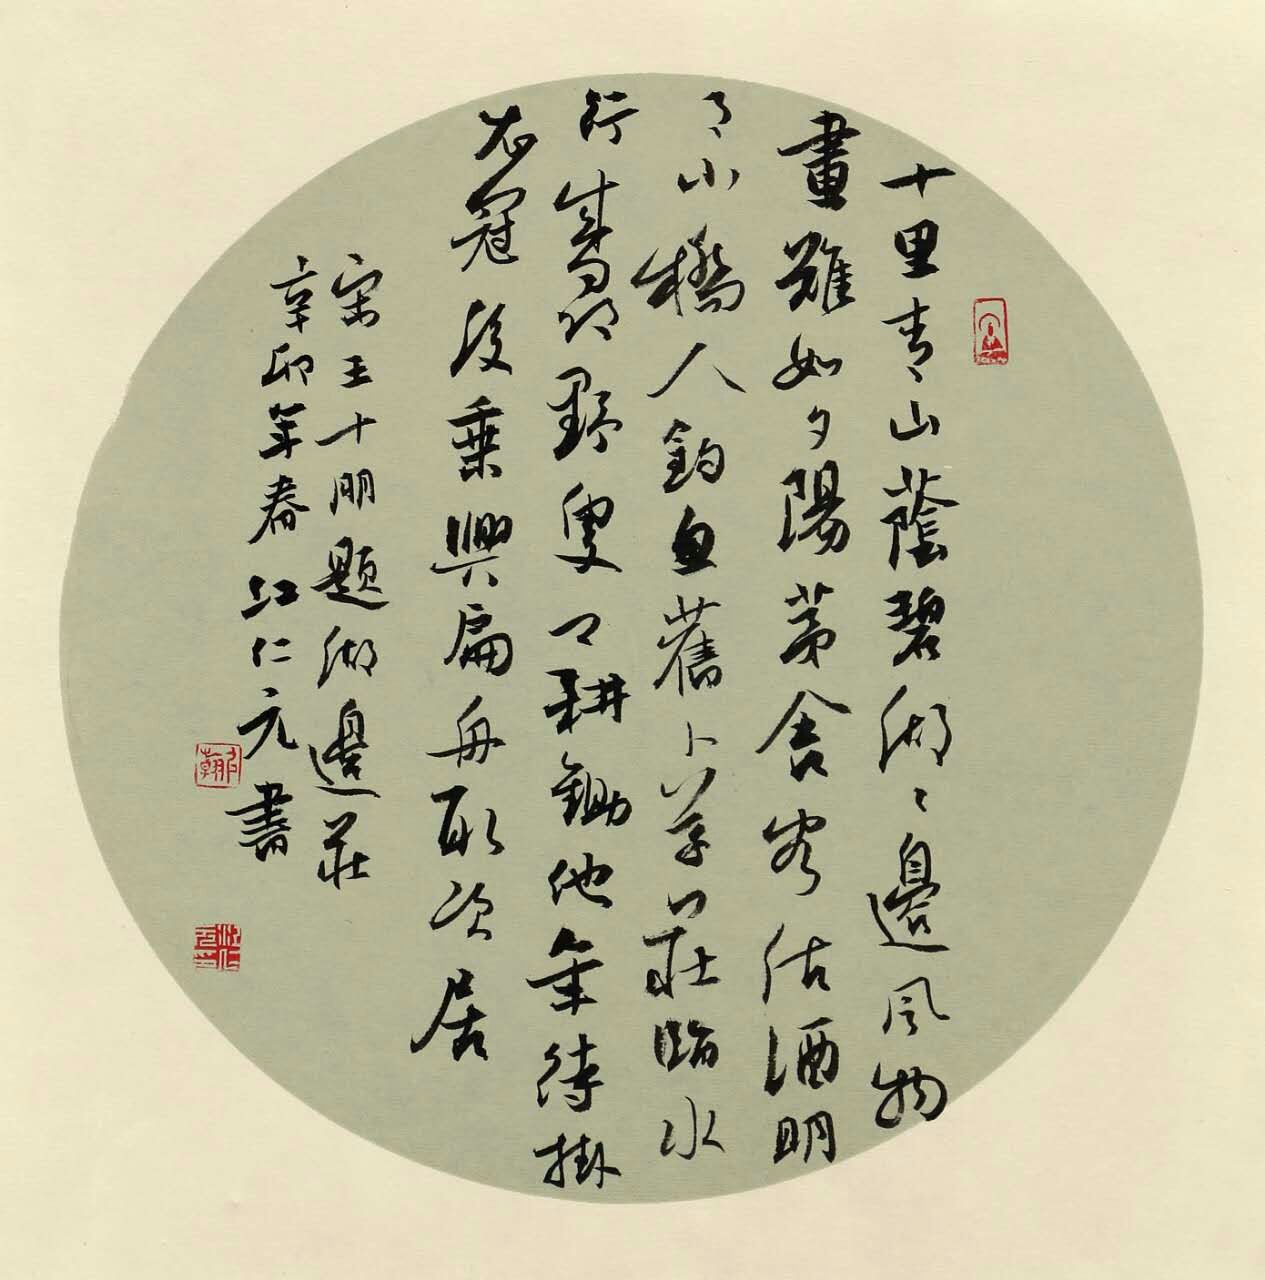 十里青山蔭碧湖〻邊風物
畫難如夕陽茅舍客沽酒明
月小橋人釣魚舊卜草莊臨水
竹來尋野叟問耕鋤他年待掛
衣冠後乘興扁舟取次居
宋王十朋題湖邊莊
辛卯年春江仁元書